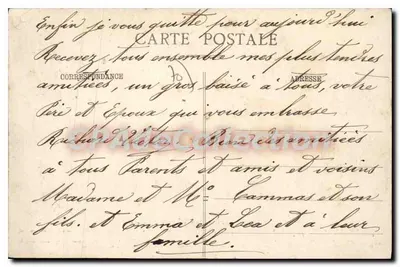 Enfin je vous quitte pour aujourd'hui
CARTE POSTALE
Recevez tous ensemble mes plus tendres
CORRESPONDANCE
ADRESSE
amitiées, un gros baisé à tous, votre
Péri et Epoux qui vous embrasse
Bien des amitiées
à tous Parents et amis et voisins
Madame et Mr Cammas et son
fils. et Emma et Léa et à leur
famille.